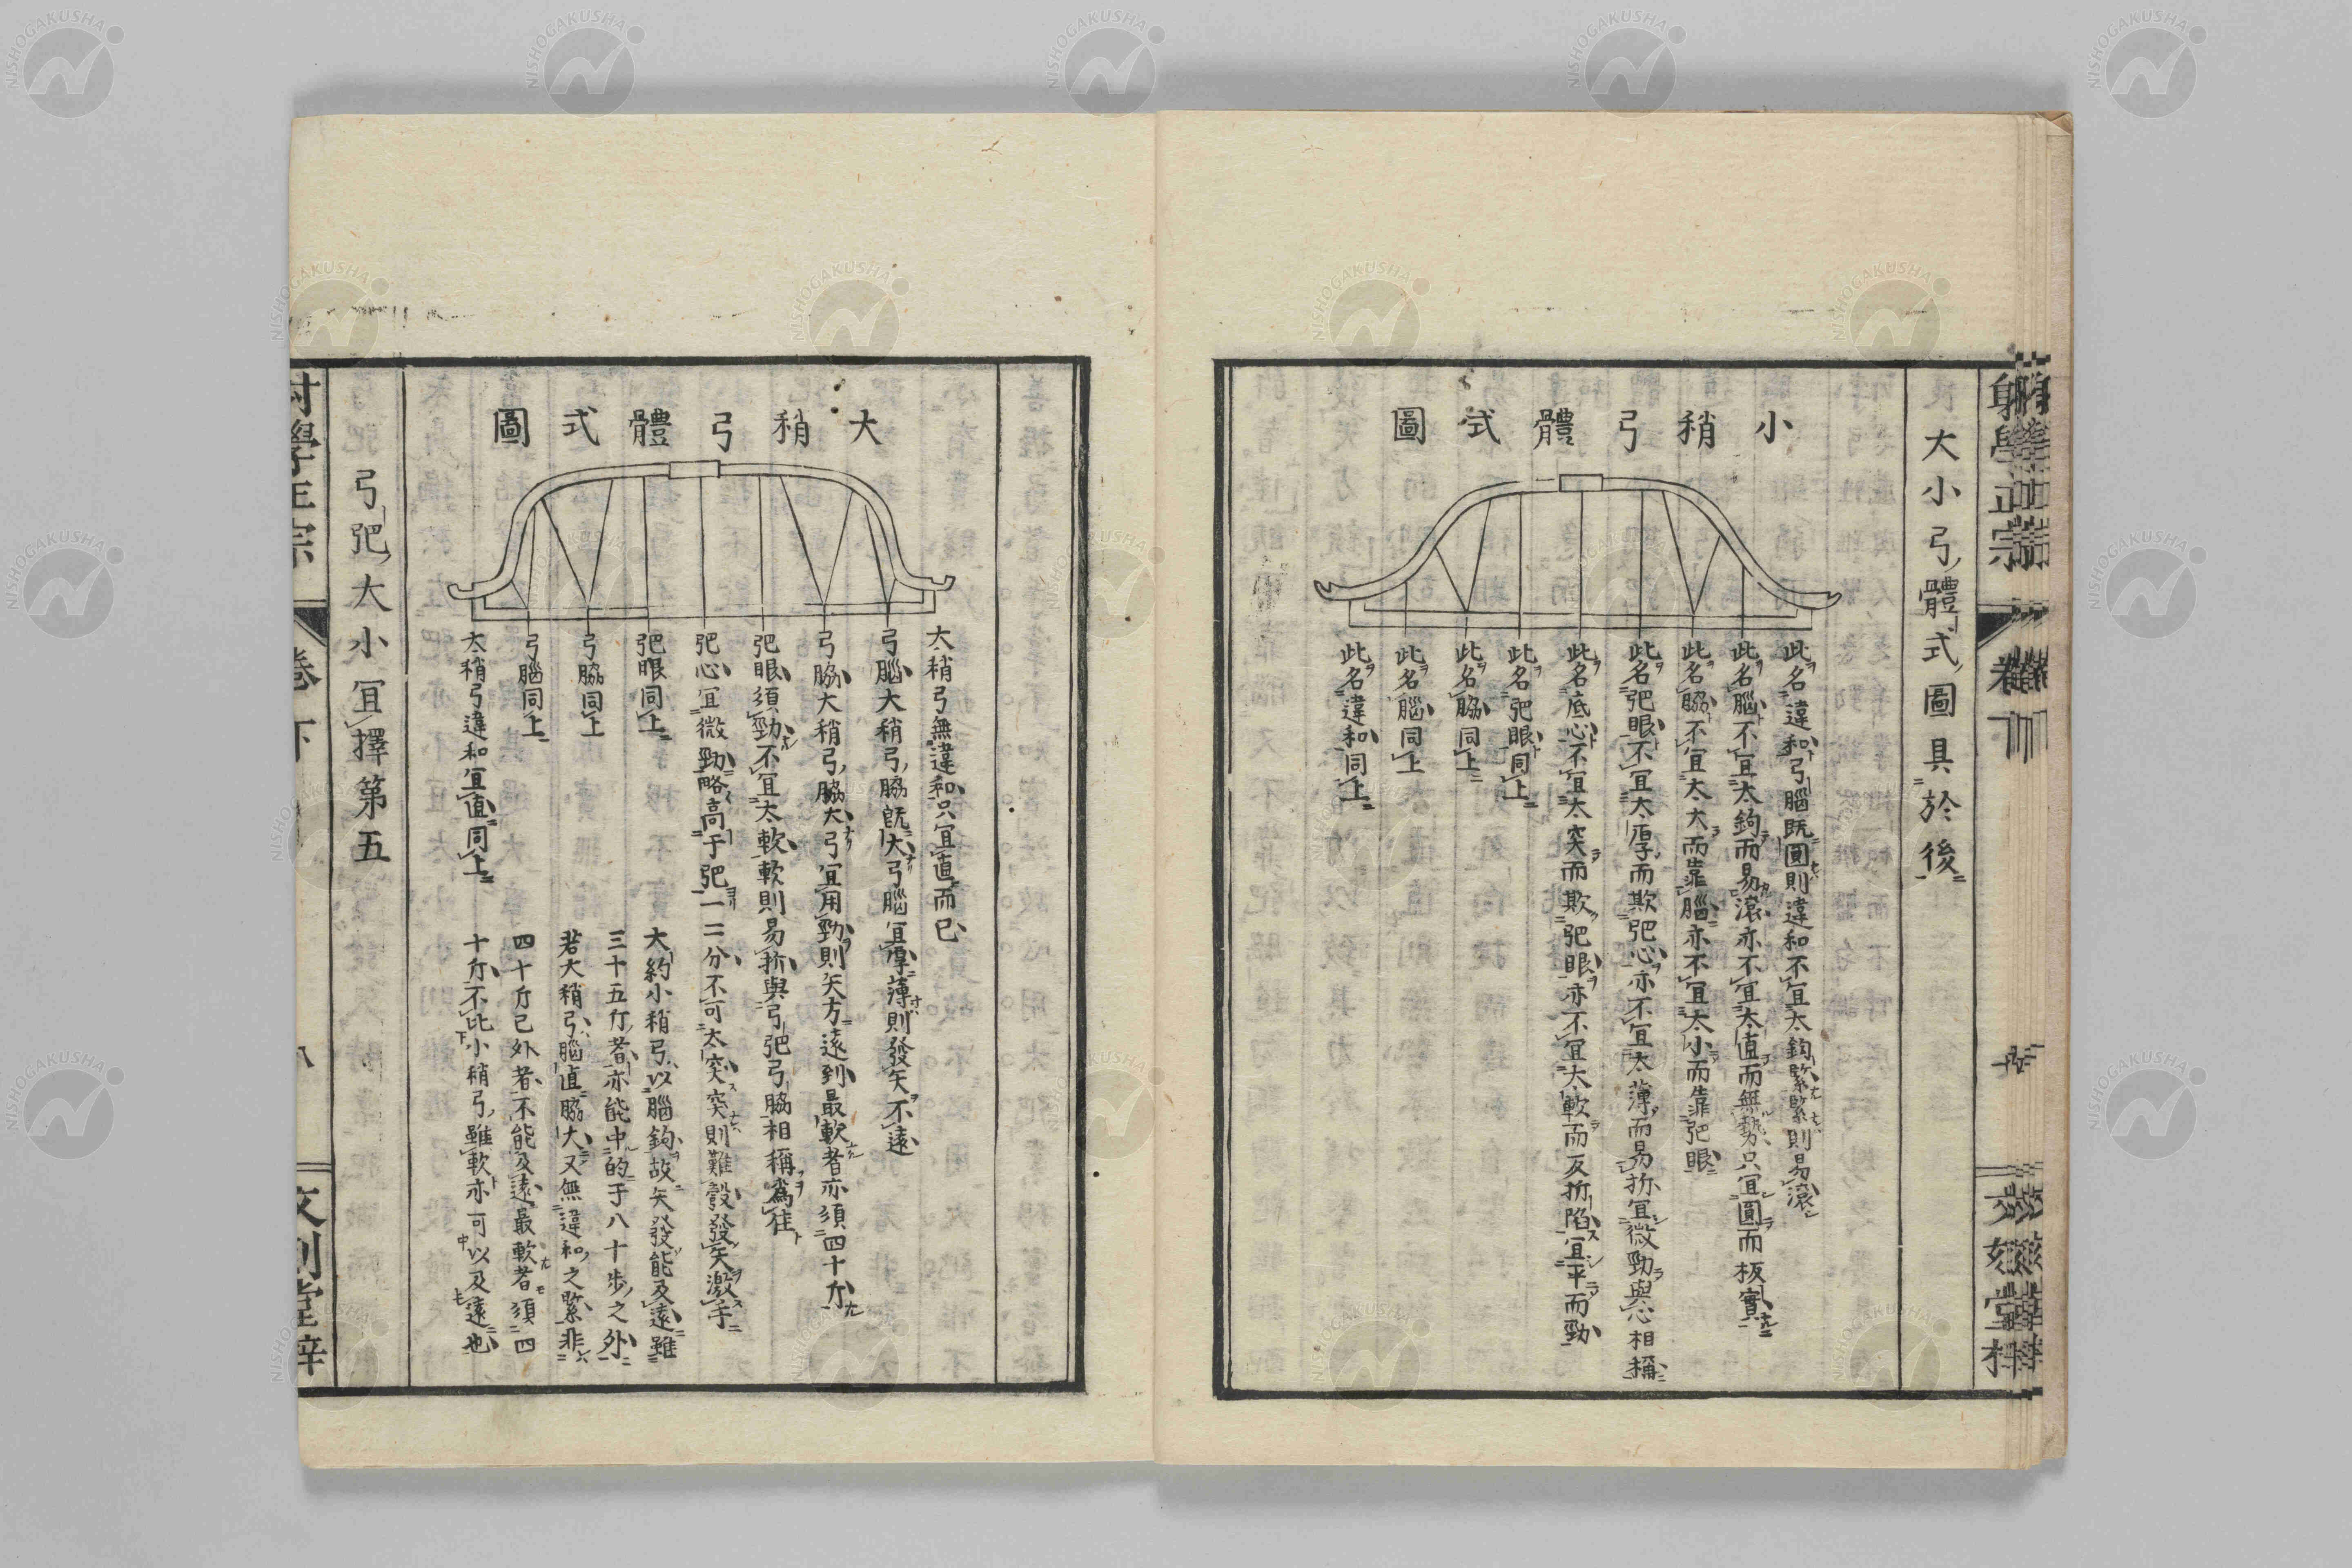 大小弓體式圖具於後
小稍弓體式圖
此名違和弓腦既圓則違和不宜太鈎緊緊則易滾
此名腦不宜太鈎而易滾亦不宜太値而無勢只宜圓而板實
此名脇不宜太大而靠腦亦不宜太小而靠弝眼
此名弝眼不宜太厚而欺弝心亦不宜太薄而易折宜微勁與心相稱
此名底心不宜太突而欺弝眼亦不宜大軟而反折陷宜平而勁
此名弝眼同上
此名脇同上
此名腦同上
此名違和同上
大稍弓體式圖
太稍弓無違和只宜直而已
弓腦大稍弓脇旣大弓腦宜厚薄則發矢不遠
弓脇大稍弓脇大弓宜用勁則矢方遠到最軟者亦須四十斤
弝眼須勁不宜太軟軟則易折與弓弝弓脇相稱爲佳
弝心宜微勁略高于弝一二分不可太突突則難彀發矢激手
弝眼同上
弓脇同上
弓腦同上
太稍弓違和宜値同上
大約小稍弓以腦鈎故矢發能及遠雖
三十五斤者亦能中的于八十步之外
若大稍弓腦値脇大又無違和之緊非
四十斤已外者不能及遠最軟者須四
十斤不比小稍弓雖軟亦可以及遠也
弓弝大小宜擇第五
射學正宗
卷下
八
文刻堂梓
NISHOGAKUSHA